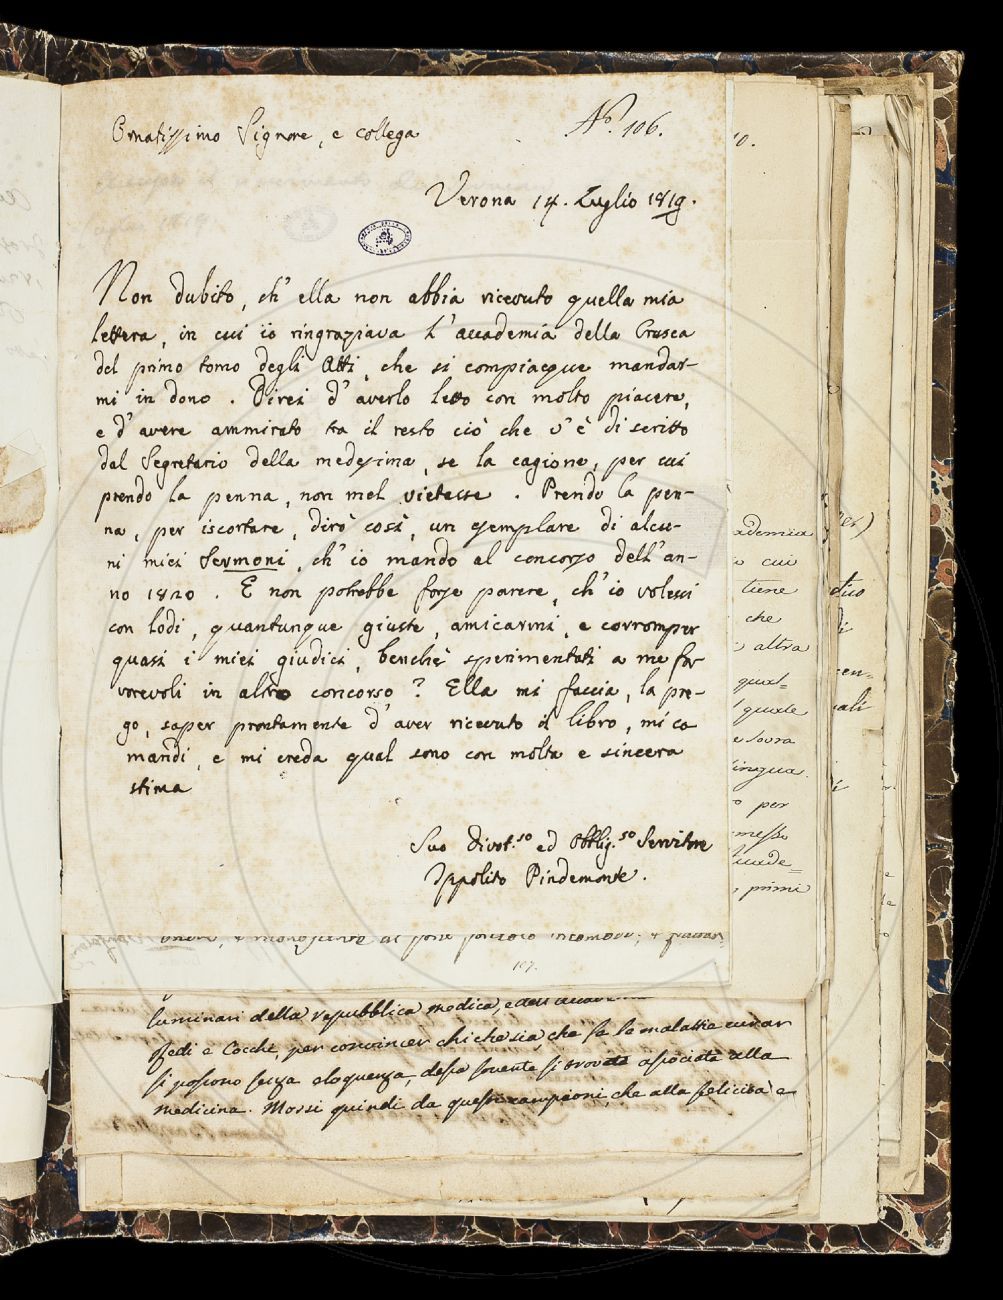 Ornatissimo Signore, e collega
N.° 106.
Verona 14. Luglio 1819.
Non dubito, ch' ella non abbia ricevuto quella mia
lettera, in cui io ringraziava l' accademia della Crusca
del primo tomo degli Atti, che si compiacque mandar-
mi in dono. Direi d' averlo letto con molto piacere,
e d' avere ammirato tra il resto ciò che v' è di scritto
dal Segretario della medesima, se la cagione, per cui
prendo la penna, non mel vietasse. Prendo la pen-
na, per iscortare, dirò così, un esemplare di alcu-
ni miei Sermoni, ch' io mando al concorso dell' an-
no 1820. E non potrebbe forse parere, ch' io volessi
con lodi, quantunque giuste, amicarmi, e corromper
quasi i miei giudici, benchè sperimentati a me fa-
vorevoli in altro concorso? Ella mi faccia, la pre-
go, saper prontamente d' aver ricevuto il libro, mi co
mandi, e mi creda qual sono con molta e sincera
stima
Suo divot.so ed obblig.so Servitore
Ippolito Pindemonte.
ademia
cui
tiene
che
altra
qual-
quale
e sovra
lingua.
per
messo
primi
107.
luminari della repubblica medica,
Redi e Cocchi, per convincer chichesia, che se le malattie curar
si possono senza eloquenza, dessa sovente si trovata associata alla
medicina. Mossi quindi da questi campioni, che alla felicità e